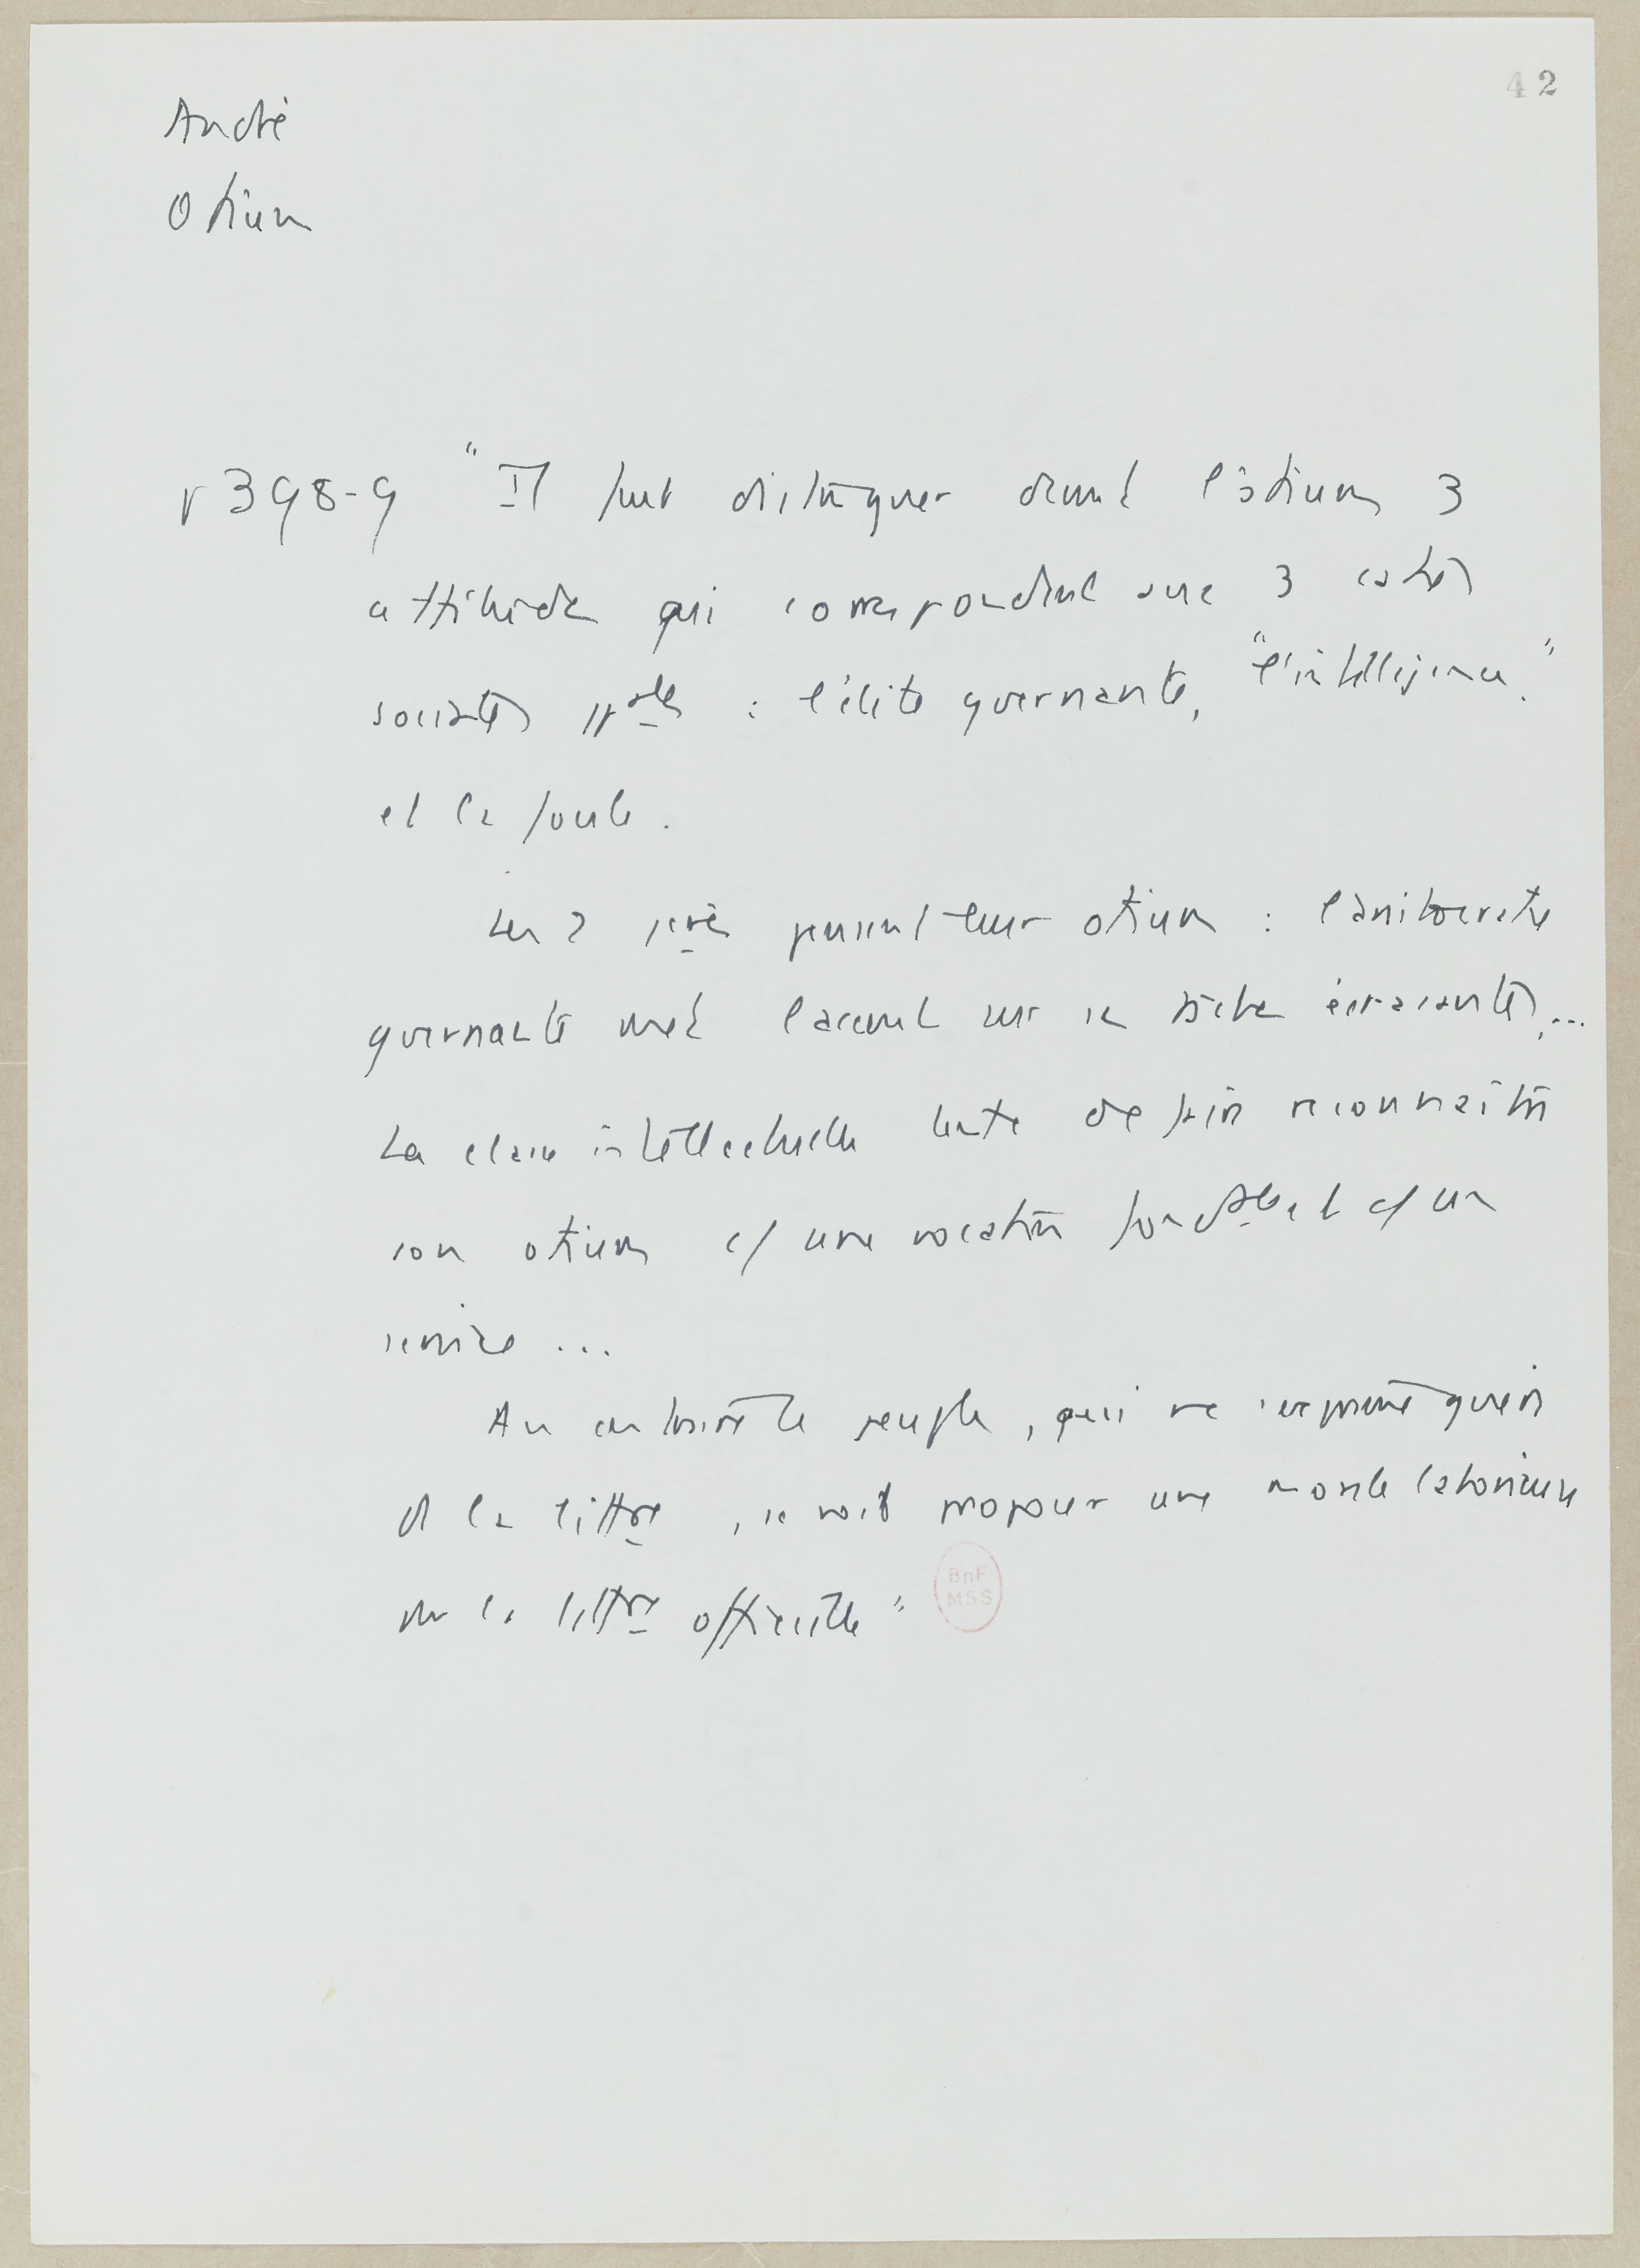 42
André
Otium
p 398-9 "Il faut distinguer devant l'otium 3
attitudes qui correspondent aux 3 castes
sociales ppales : l'élite gouvernante, "l'intelligence"
et la foule.
Les 2 1ères pensent leur otium : l'aristocratie
gouvernante met l'accent sur ses tâches écrasantes, ...
La classe intellectuelle tente de faire reconnaître
son otium c/ une vocation et c/ un
service ...
Au contraire le peuple, qui ne s'exprime guère
ds la littre, se voit proposer une morale laborieuse
par la littre officielle"
BnF
MSS